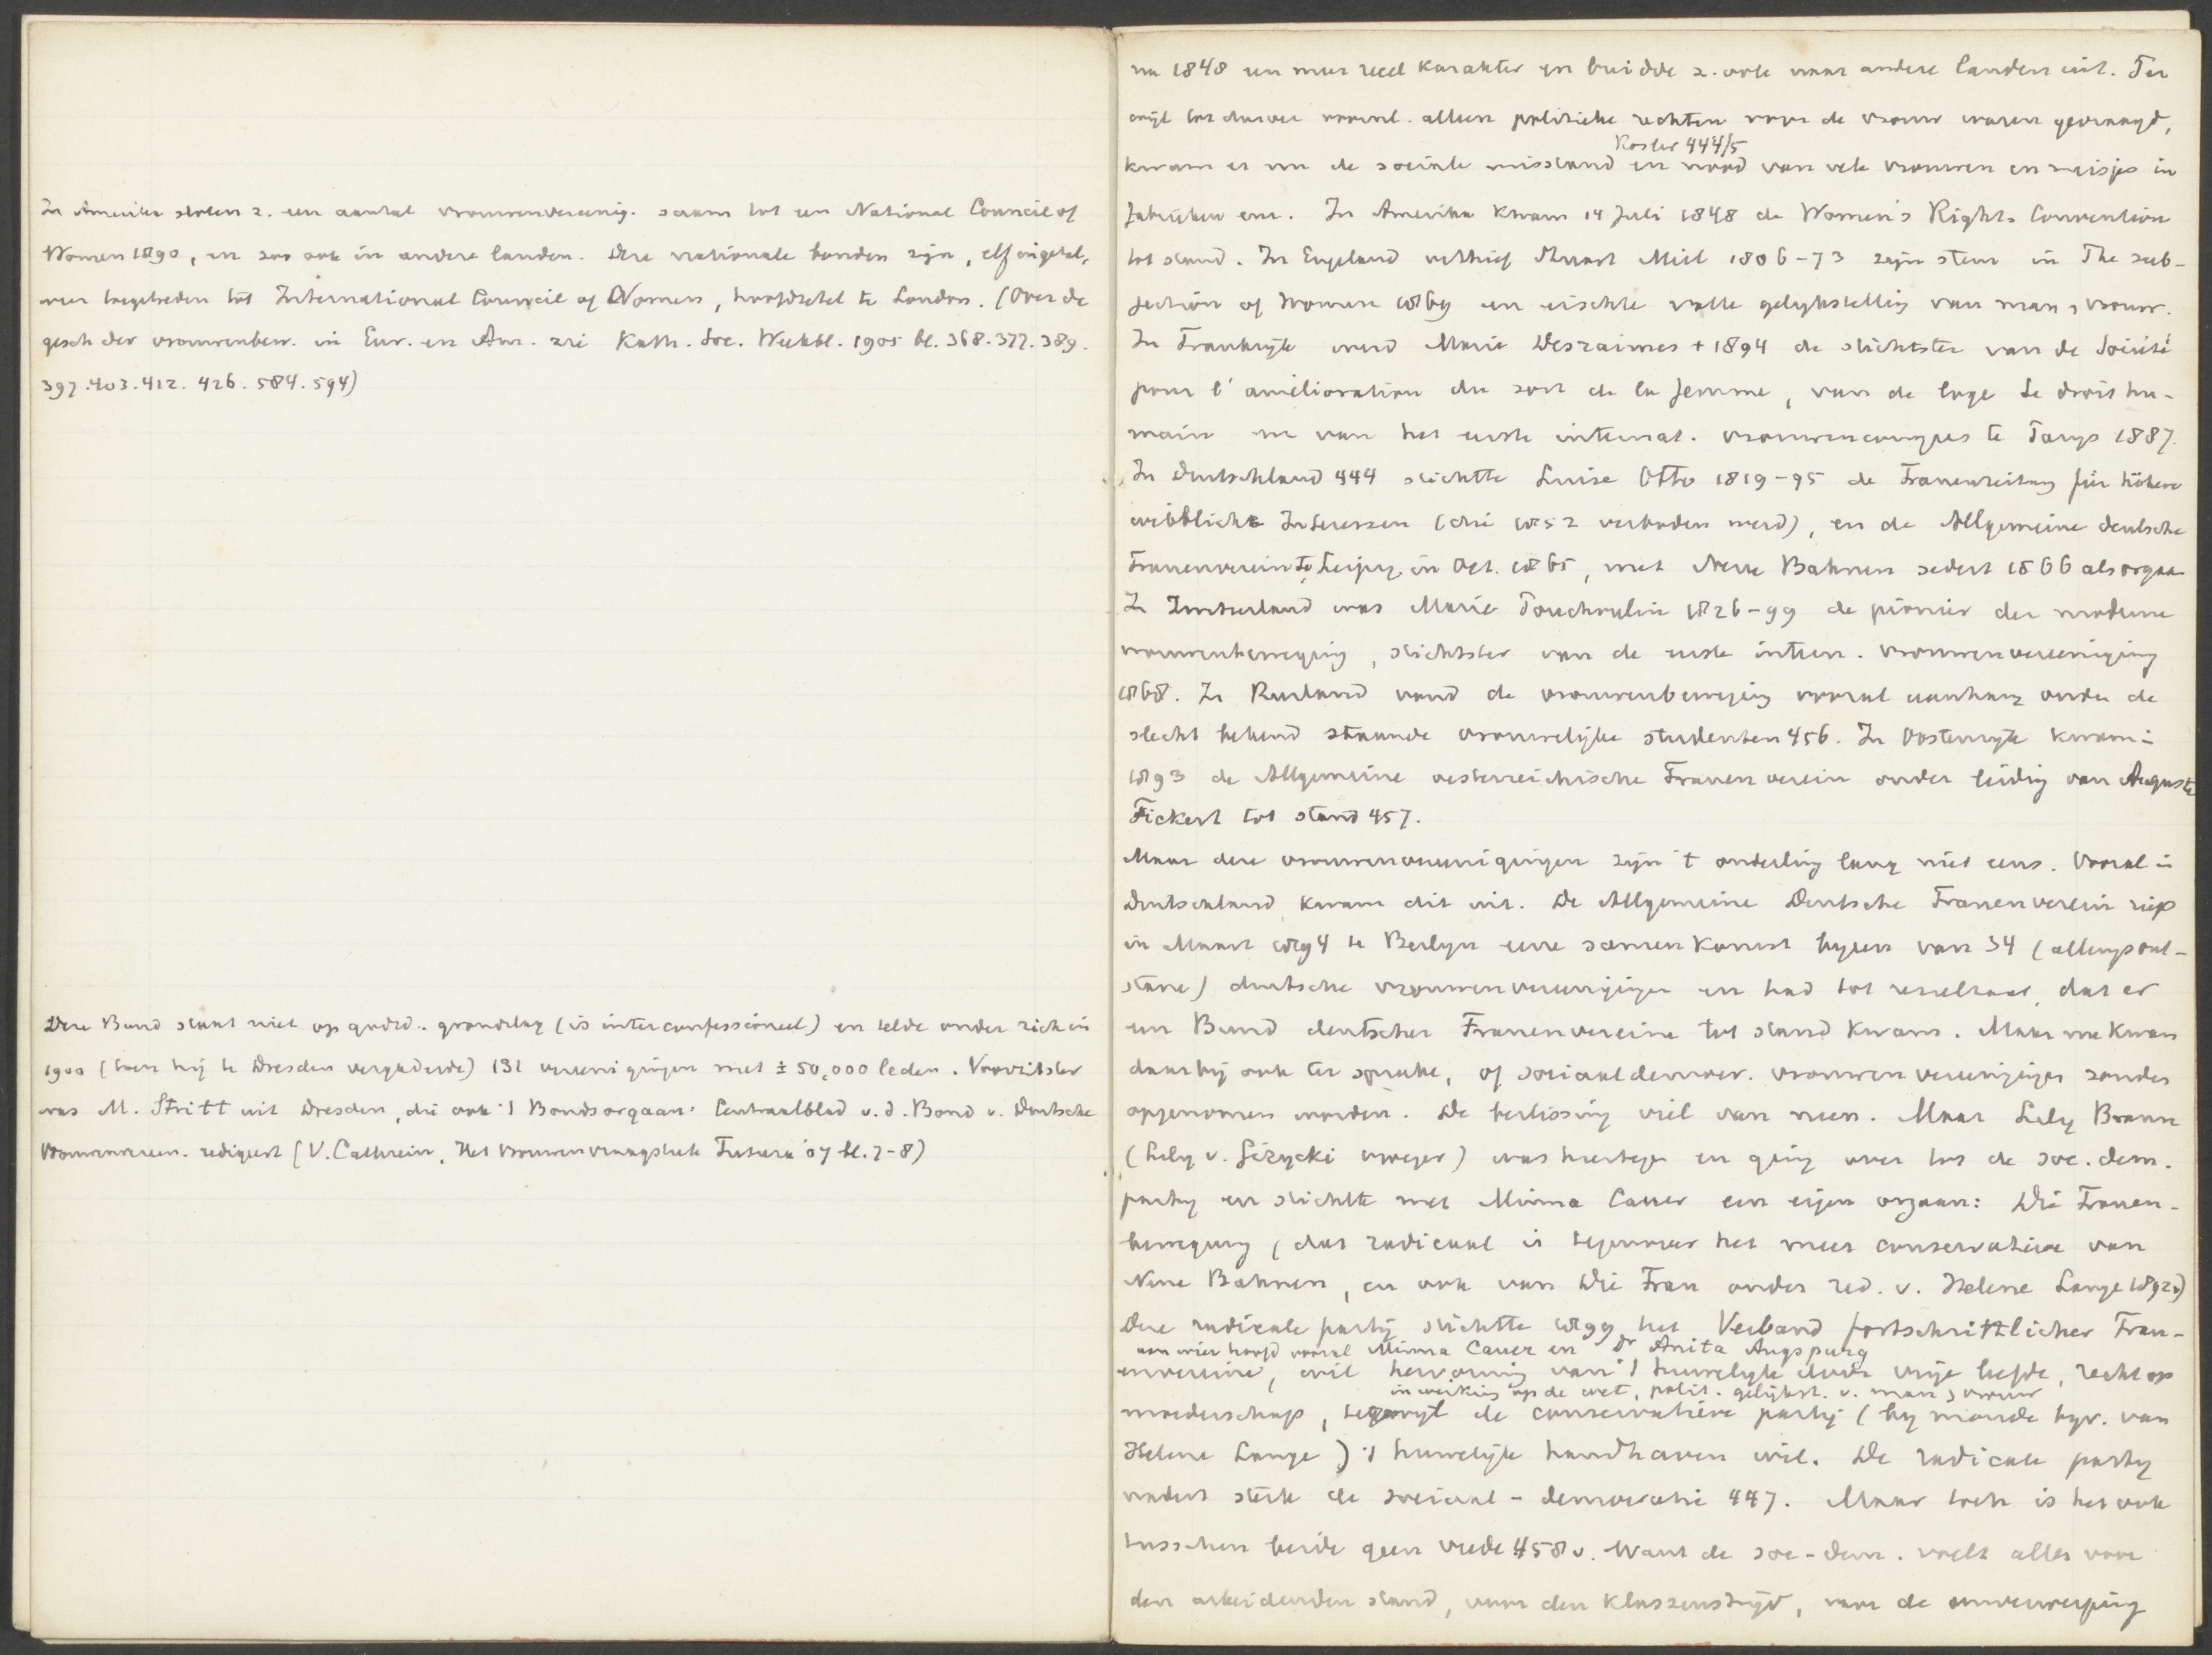 In Amerika sloten z. een aantal vrouwenvereenig. saam tot een National Council of
Women 1890, en zoo ook in andere landen. Deze nationale bonden zijn, elf in getal,
weer toegetreden tot International Council of Women, hoofdzetel te Londen. (Over de
gesch der vrouwenbew. in Eur. en Am. zie Kath. Soc. Weekbl. 1905 bl. 368. 377. 389.
397. 403. 412. 426. 584. 594)
Deze Bund staat niet op godsd. grondslag (is interconfessioneel) en telde onder zich in
1900 (toen hij te Dresden vergaderde) 131 vereenigingen met ± 50,000 leden. Voorzitster
was M. Stritt uit Dresden, die ook 't Bondsorgaan: Centraalblad v. d. Bond v. Duitsche
Vrouwenvereen. redigeert (V. Cathrein, Het vrouwenvraagstuk Futura '07 bl. 7-8)
na 1848 een meer reëel karakter en breidde z. ook naar andere landen uit. Ter
wijl tot dusver voornl. alleen politieke rechten voor de vrouw waren gevraagd,
Rösler 444/5
kwam er nu de sociale misstand en nood van vele vrouwen en meisjes in
fabrieken enz. In Amerika kwam 14 Juli 1848 de Women's Rights Convention
tot stand. In Engeland verhief Stuart Mill 1806-73 zijn stem in The sub-
jection of women 1869 en eischte volle gelijkstelling van man, vrouw.
In Frankrijk werd Maria Desraimes + 1894 de stichtster van de Société
pour l'amélioration du sort de la femme, van de loge Le droit hu-
main en van het eerste internat. vrouwencongres te Parijs 1887.
In Duitschland 444 stichtte Luise Otto 1819-95 de Frauenzeitung für höhere
weibliche Interessen (die 1852 verboden werd), en de Allgemeine deutsche
Frauenverein te Leipz. in Oct. 1865, met Neue Bahnen sedert 1866 als orgaan
In Zwitserland was Marie Pouchoulin 1826-99 de pionier der moderne
vrouwenbeweging, stichtster van de eerste intern. vrouwenvereeniging
1868. In Rusland vond de vrouwenbeweging vooral aanhang onder de
slecht bekend staande vrouwelijke studenten 456. In Oostenrijk kwam in
1893 de Allgemeine oesterreichische Frauenverein onder leiding van Auguste
Fickert tot stand 457.
Maar deze vrouwenvereenigingen zijn 't onderling lang niet eens. Vooral in
Duitschland kwam dit uit. De Allgemeine Deutsche Frauenverein riep
in Maart 1894 te Berlijn eene samenkomst bijeen van 34 (allengs ont-
stane) duitsche vrouwenvereenigingen en had tot resultaat, dat er
een Bund deutscher Frauenvereine tot stand kwam. Maar nu kwam
daarbij ook ter sprake, of sociaaldemocr. vrouwenvereenigingen zouden
opgenomen worden. De beslissing viel van neen. Maar Lily Braun
(Lily v. Gizycki vroeger) was hiertegen en ging over tot de soc. dem.
partij en stichtte met Minna Cauer een eigen orgaan: Die Frauen-
bewegung, (dat radicaal is tegenover het meer conservatieve van
Neue Bahnen, en ook van Die Frau onder red. v. Helene Lange 1892v)
Deze radicale partij stichtte 1899 het Verband fortschrittlicher Frau-
aan wier hoofd vooral Minna Cauer en Dr Anita Augspurg
envereine, wil hervorming van 't huwelijk door vrije liefde, recht op
inwerking op de wet, polit. gelijkst. v. man, vrouw
moederschap, terwijl de conservatieve partij (bij monde bijv. van
Helene Lange) 't huwelijk handhaven wil. De radicale partij
nadert sterk de sociaal-democratie 447. Maar toch is het ook
tusschen beide geen vrede 458v. Want de soc-dem. voelt alles voor
den arbeidenden stand, voor den klassenstrijd, voor de omverwerping